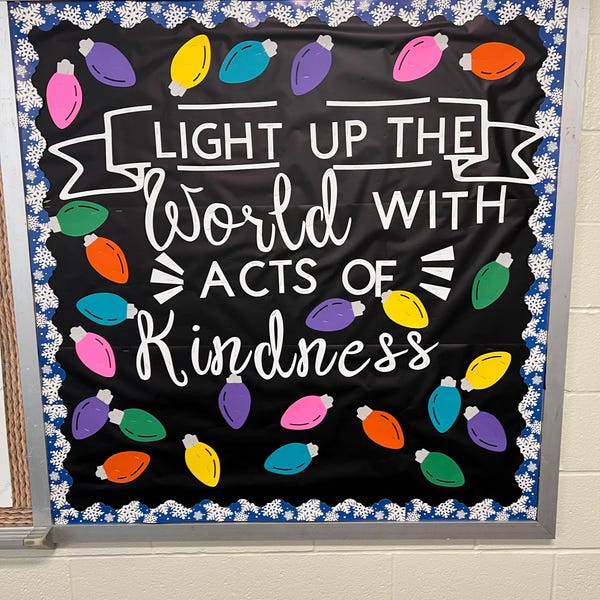 LIGHT UP THE
World WITH
ACTS OF
Kindness